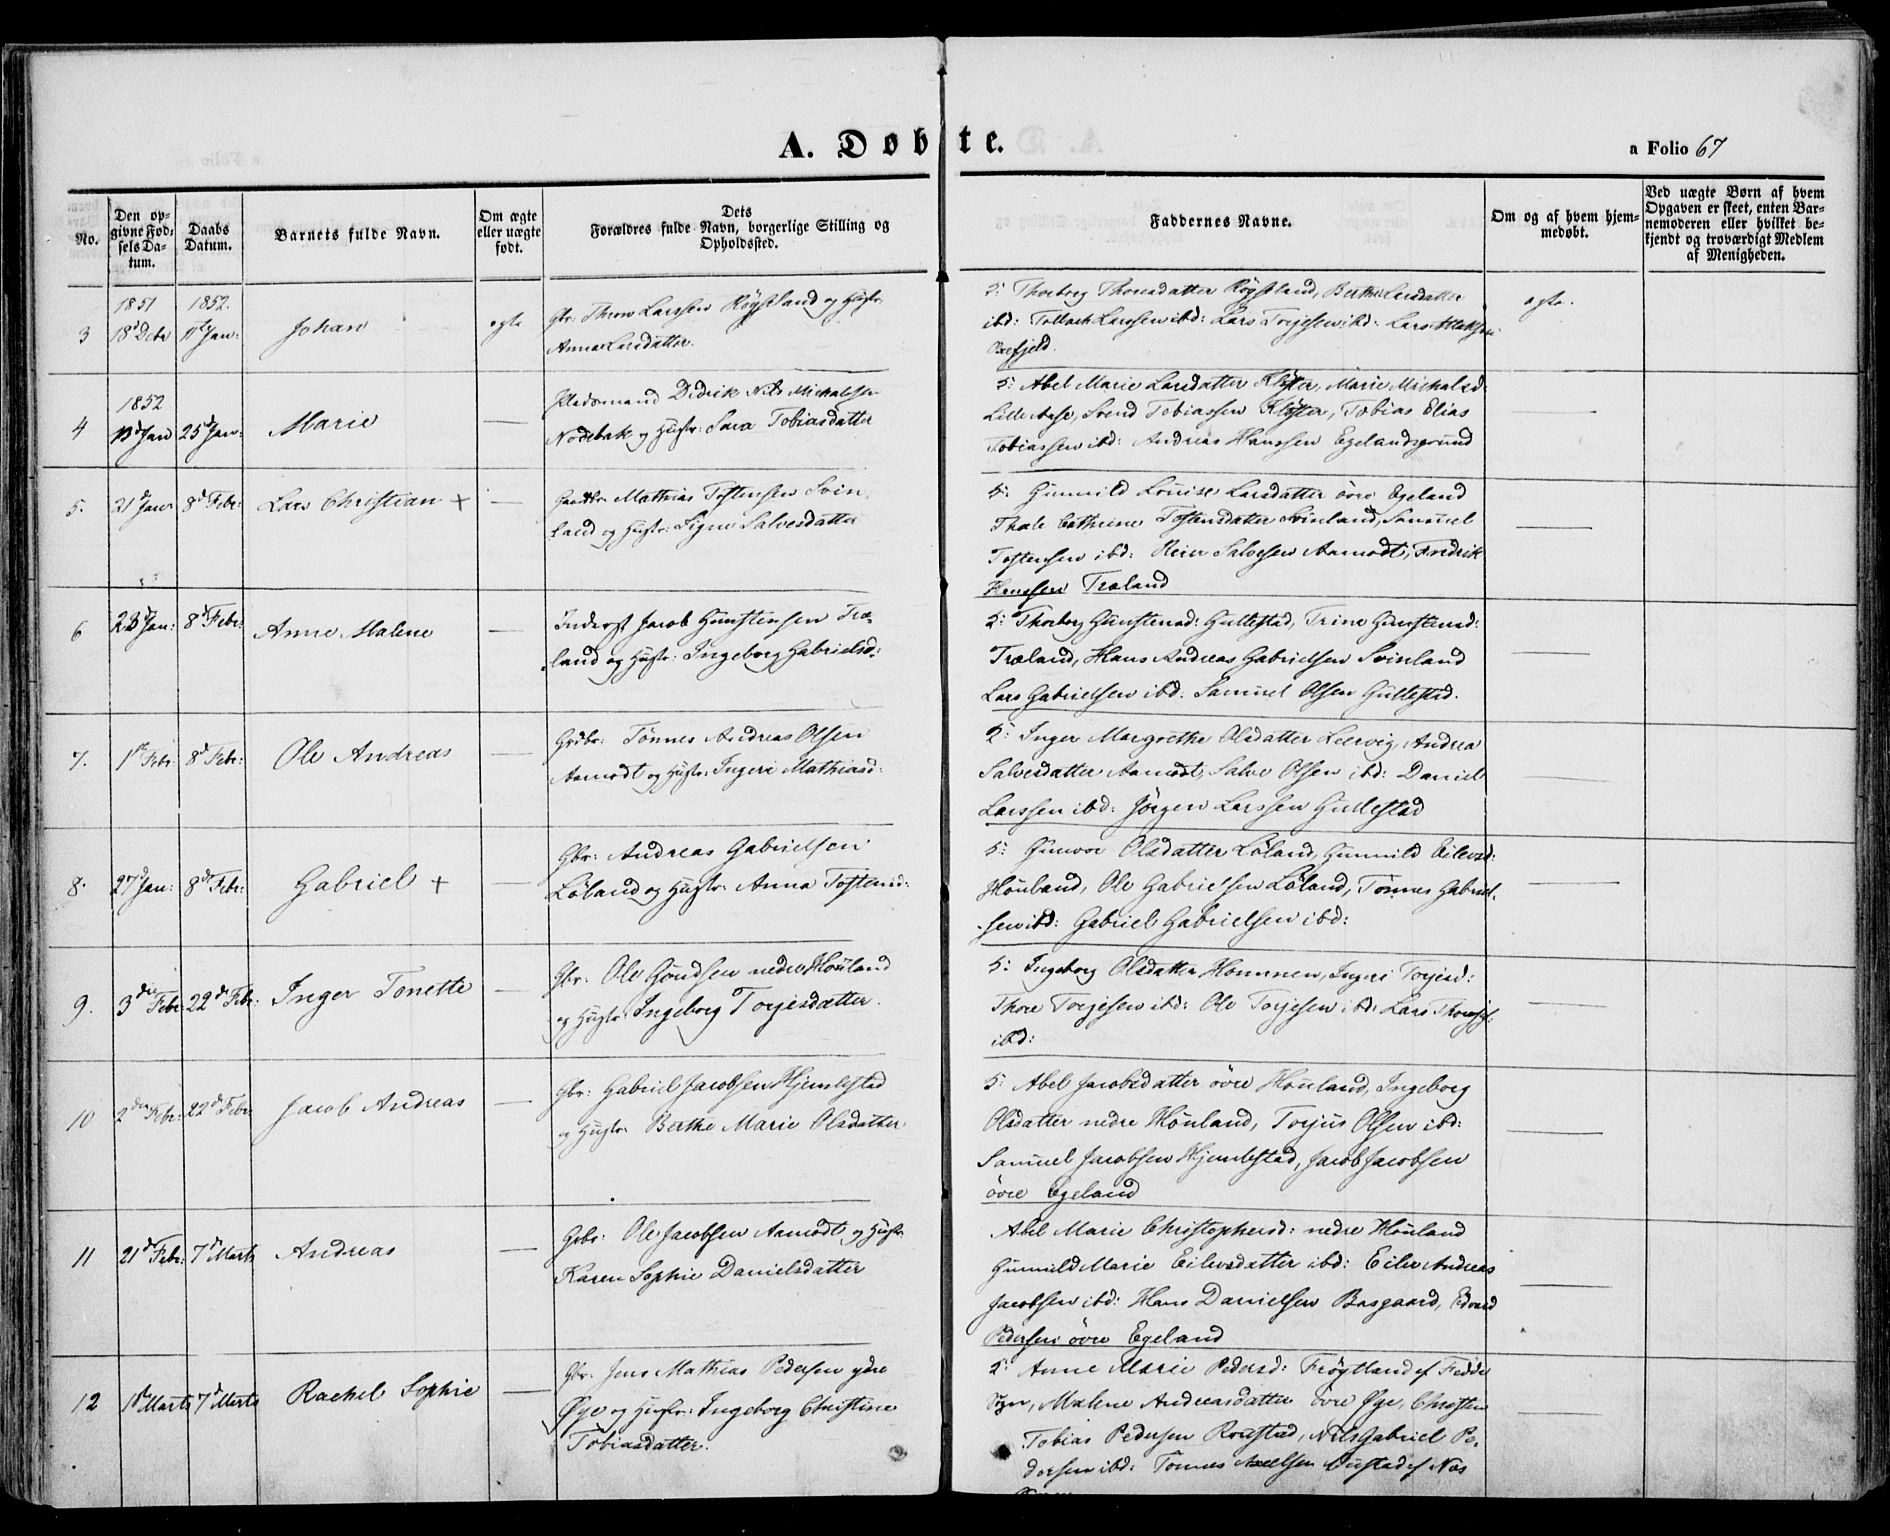 A. Døbte.
a Folio 67
No.
Den op-
givne Fød-
sels Da-
tum.
Daabs
Datum.
Barnets fulde Navn.
Om ægte
eller uægte
født.
Dets
Forældres fulde Navn, borgerlige Stilling og
Opholdssted.
Faddernes Navne.
Om og af hvem hjem-
medøbt.
Ved uægte Børn af hvem
Opgaven er skeet, enten Bar-
nemoderen eller hvilket be-
kjendt og troværdigt Medlem
af Menigheden.
1851 1852.
3 18d Decbr 11te Jan: Johan egte
Gbr: Thore Larssen Røysland og Hustr:
Anna Larsdatter.
5: Thorborg Thoresdatter Røysland, Berthe Larsdatter
ibd: Tollach Larssen ibd: Lars Torjesen ibd: Lars
egte.
1852
4 13d Jan 25d Jan: Marie —
Pladsmand Didrik Nils Michalsen
Nodebak og Hustr: Sara Tobiasdatter
5: Abel Marie Larsdatter Kløster, Marie Michalsd:
Lille Aase, Svend Tobiassen Kløster, Tobias Elias
Tobiassen ibd: Andreas Hanssen Egelandsgrund
—
5. 21d Janr 8d Febr: Lars Christian + —
Gaardbr: Mathias Tostensen Svin-
land og Hustr: Signe Salvesdatter
5: Gunnild Louise Larsdatter övre Egeland
Thale Cathrine Tostensdatter Svinland, Samuel
Tostensen ibd: Reier Salvesen Aamodt, Fredrik
Hanssen Træland
—
6 23d Jan: 8d Febr: Anne Malene —
Inderst Jacob Gunstensen Træ-
land og Hustr: Ingeborg Gabrielsd:
5: Thorborg Gunstensd: Gullestad, Trine Gunstensd:
Træland, Hans Andreas Gabrielsen Svinland
Lars Gabrielsen ibd: Samuel Olsen Gullestad.
—
7. 1ste Febr: 8d Febr: Ole Andreas —
Grdbr: Tönnes Andreas Olsen
Aamodt og Hustr: Ingeri Mathiasd:
5: Inger Margrethe Olsdatter Lervig, Andrea
Salvesdatter Aamodt, Salve Olsen ibd: Daniel
Larssen ibd: Jörgen Larssen Gullestad
—
8. 27d Jan: 8de Febr: Gabriel + —
Gbr: Andreas Gabrielsen
Löland og Hustr: Anna Tostensd:
5: Gunvor Olsdatter Löland, Gunnild Eilevsd:
Houland, Ole Gabrielsen Löland, Tönnes Gabriel-
sen ibd: Gabriel Gabrielsen ibd:
—
9. 3die Febr: 22de Febr: Inger Tonette —
Gbr: Ole nedre Houland
og Hustr: Ingeborg Torjesdatter.
5: Ingeborg Olsdatter Hommen, Ingeri Torjesd:
Thore Torjesen ibd: Ole Torjesen ibd: Lars
ibd:
—
10 2den Febr: 22de Febr: Jacob Andreas —
Gbr: Gabriel Jacobsen Hjemlestad
og Hustr: Berthe Marie Olsdatter
5: Abel Jacobsdatter övre Houland, Ingeborg
Olsdatter nedre Houland, Torjus Olsen ibd:
Samuel Jacobsen Hjemlestad, Jacob Jacobsen
övre Egeland
—
11 21d Febr: 7d Marts Andreas —
Gbr: Ole Jacobsen Aamodt og Hustr:
Karen Sophie Danielsdatter
Abel Marie Christophersd: nedre Houland
Gunnild Marie Eilevsdatter ibd: Eilev Andreas
Jacobsen ibd: Hans Danielsen Basgaard, Edvard
Pedersen övre Egeland
—
12 1d Marts 7d Marts Rachel Sophie —
Gbr: Jens Mathias Pedersen ydre
Øye og Hustr: Ingeborg Christine
Tobiasdatter.
5: Anne Marie Pedersd: Frøytland af Fedde
Sogn, Malene Andreasdatter övre Øye, Christen
Tobias Pedersen Rodstad, Nils Gabriel Pe-
dersen ibd: Tonnes Axelsen af Næs
—